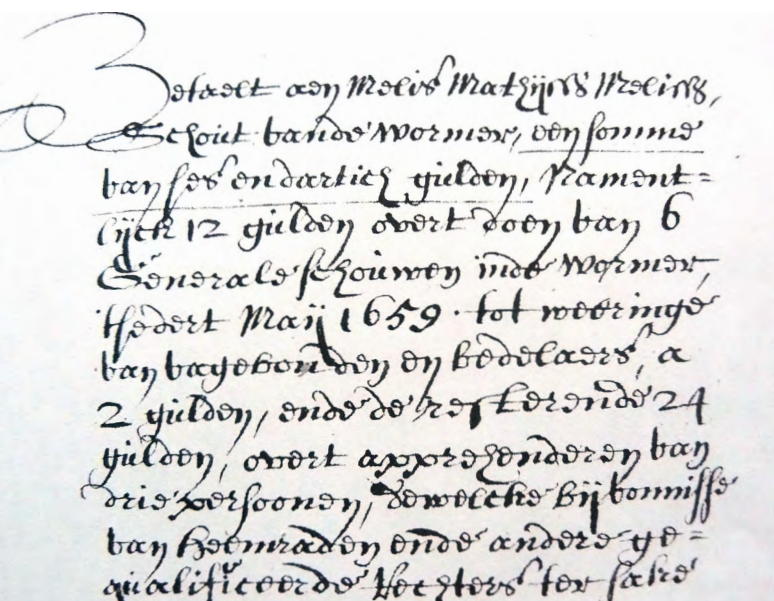 Betaelt aen Melis Mathijsss Meliss,
Schout vande Wormer, een somme
van ses en dartich gulden, Nament=
lijck 12 gulden overt doen van 6
Generale schouwen inde Wormer,
tsedert Maij 1659. tot weeringe
van vagebonden en bedelaers, a
2 gulden, ende de resterende 24
gulden, overt apprehenderen van
drie persoonen, dewelcke bij vonnisse
van Heemraden ende andere ge=
qualificeerde Rechters ter sake